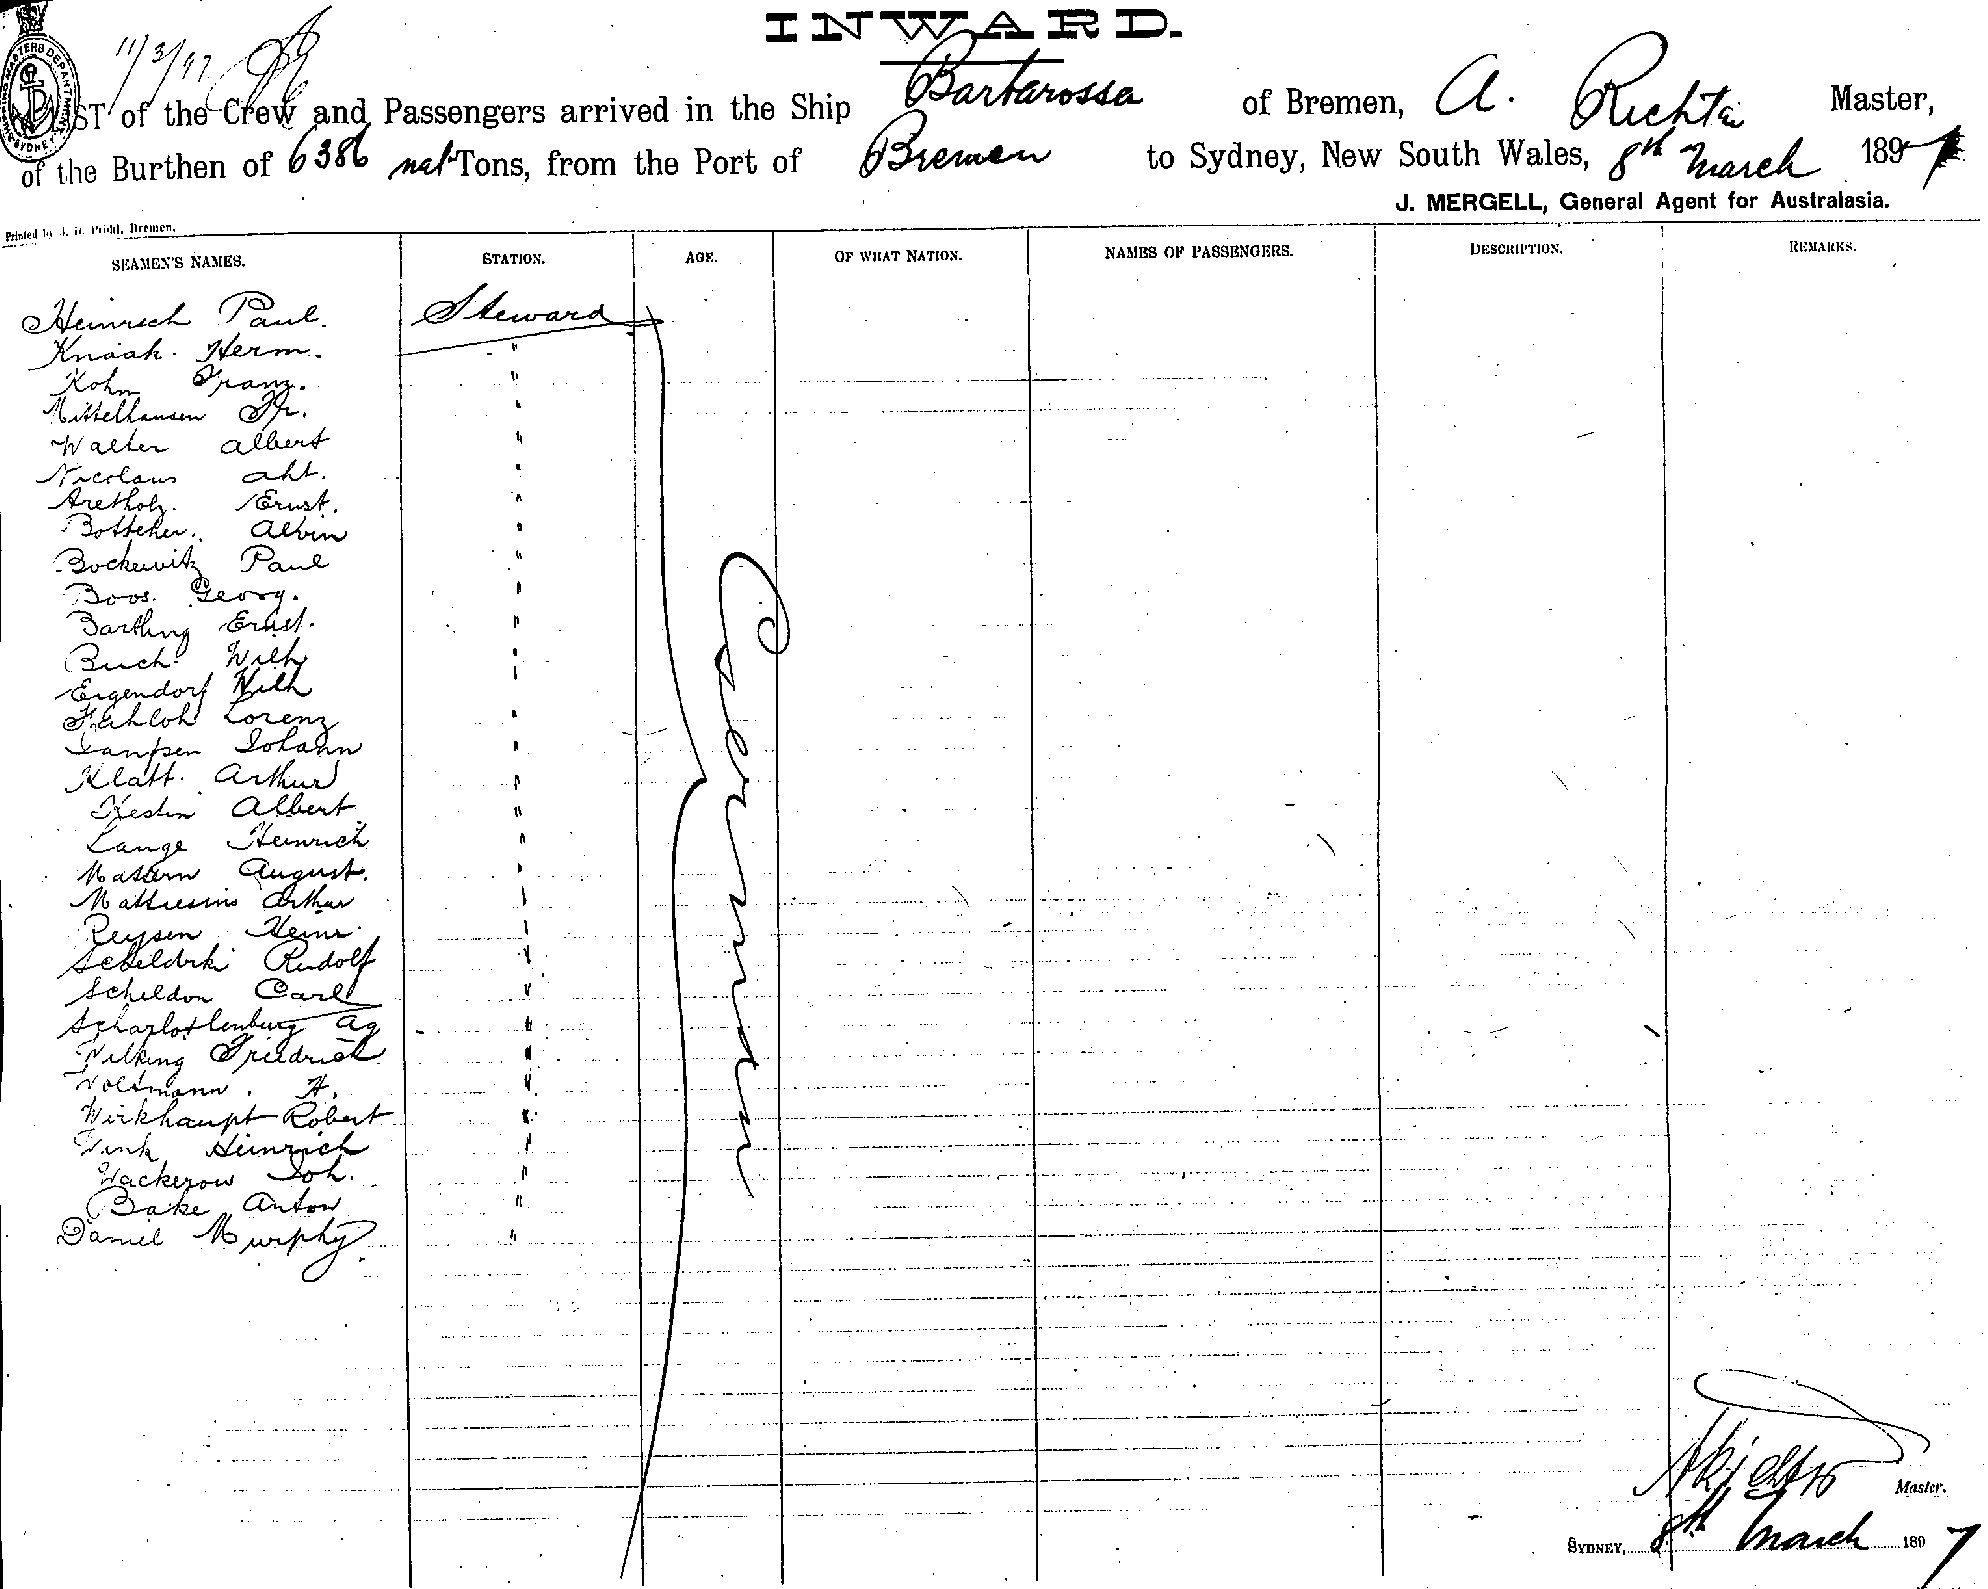 INWARD.
11/3/97
LIST of the Crew and Passengers arrived in the Ship Barbarossa of Bremen, A. Richter Master,
of the Burthen of 6386 net Tons, from the Port of Bremen to Sydney, New South Wales, 8th March 1897
J. MERGELL, General Agent for Australasia.
Printed by Bremen.
SEAMEN'S NAMES. STATION. AGE. OF WHAT NATION. NAMES OF PASSENGERS. DESCRIPTION. REMARKS.
Heinrich Paul. Steward
Knaak. Herm. "
Kohn Franz. "
Mittelhausen Fr. "
Walter Albert "
Nicolaus "
Aretholz. Ernst. "
Bottcher. Alvin "
Bockewitz Paul "
Boos. Georg. "
Barthing Ernst. "
Buch. Wilh "
Eigendorf Wilh "
Fahloh Lorenz "
Johann "
Klatt. Arthur "
Kestin Albert "
Lange Heinrich "
Mattern August. "
Arthur "
Reysen Heinr. "
Rudolf "
Scheldon Carl "
Scharlottenburg Ag "
Wilking Friedrich "
Woltmann. H. "
Wirkhaupt Robert "
Vink Heinrich "
Wackerow Joh. "
Bake Anton "
Daniel Murphy. "
German
ARichter
Master.
SYDNEY, 8th March 1897